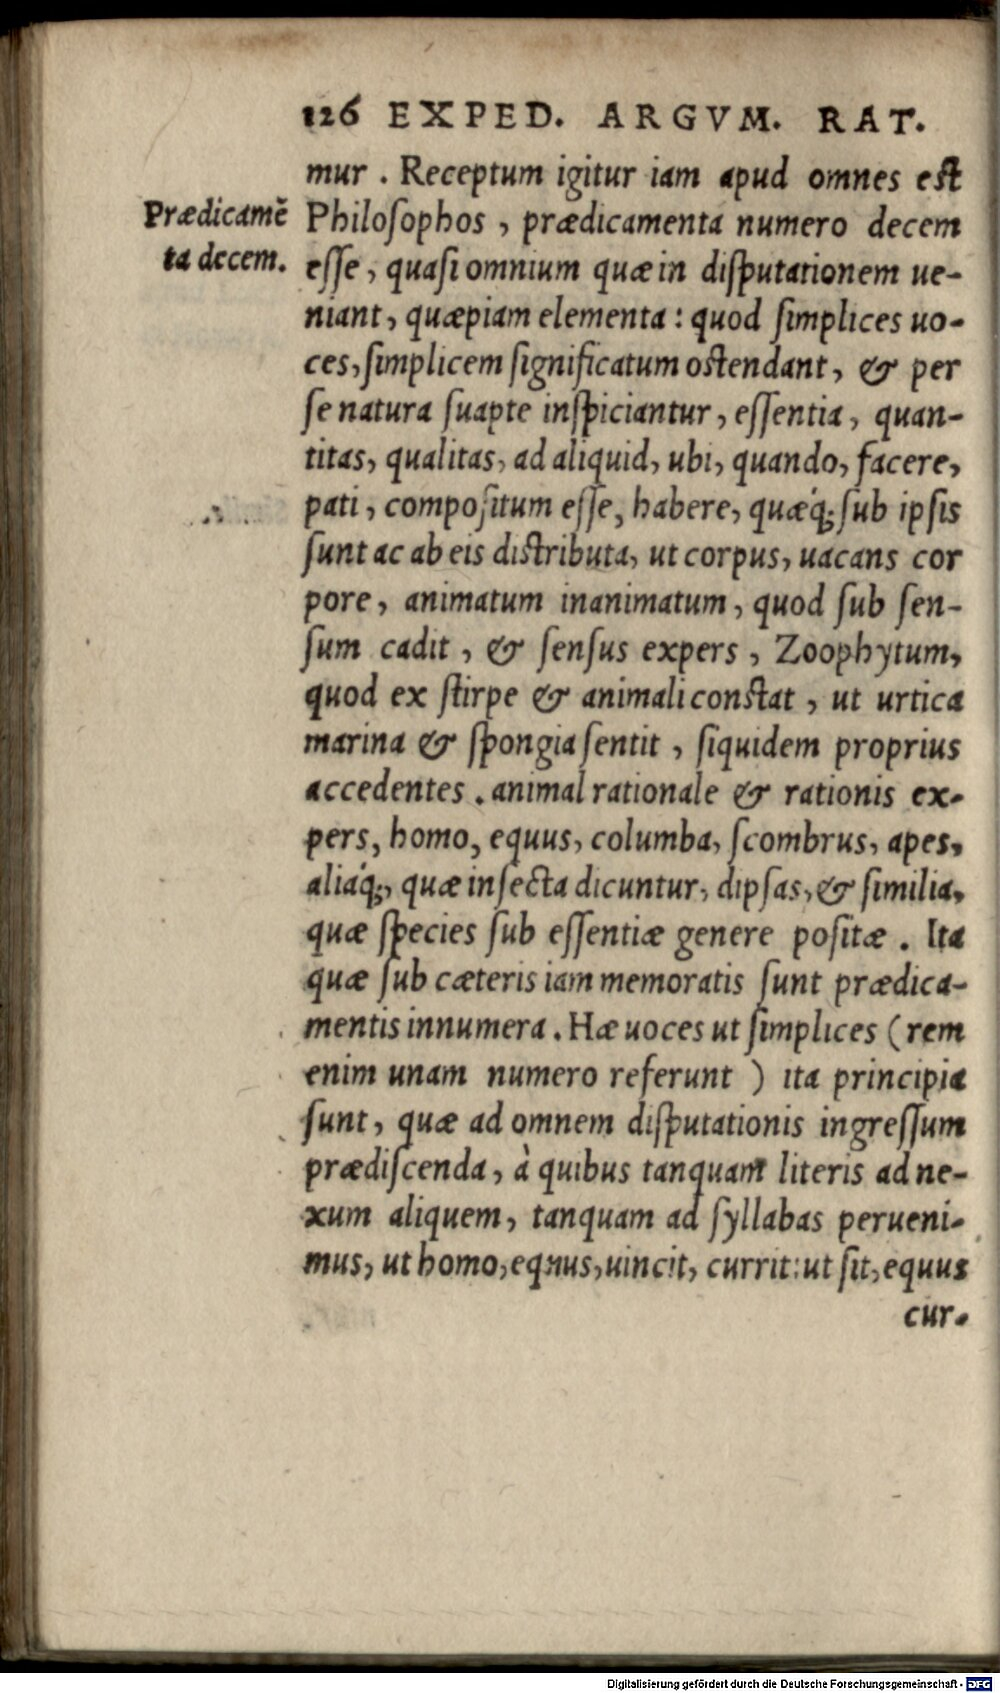 126 EXPED. ARGVM. RAT.
mur . Receptum igitur iam apud omnes est
Prædicamē
ta decem.
Philoſophos , prædicamenta numero decem
eſſe, quaſi omnium quæ in diſputationem ue-
niant, quæpiam elementa: quod ſimplices uo-
ces, ſimplicem ſignificatum oſtendant, & per
ſe natura ſuapte inſpiciantur, eſſentia, quan-
titas, qualitas, ad aliquid, ubi, quando, facere,
pati, compoſitum eſſe, habere, quæq́; ſub ipſis
ſunt ac ab eis diſtributa, ut corpus, uacans cor
pore, animatum inanimatum, quod ſub ſen-
ſum cadit, & ſenſus expers, Zoophytum,
quod ex ſtirpe & animali conſtat, ut urtica
marina & ſpongia ſentit, ſiquidem proprius
accedentes. animal rationale & rationis ex-
pers, homo, equus, columba, ſcombrus, apes,
aliáq;, quæ inſecta dicuntur, dipſas, & ſimilia,
quæ ſpecies ſub eſſentiæ genere poſitæ. Ita
quæ ſub cæteris iam memoratis ſunt prædica-
mentis innumera. Hæ uoces ut ſimplices (rem
enim unam numero referunt ) ita principia
ſunt, quæ ad omnem diſputationis ingreſſum
prædiſcenda, à quibus tanquam literis ad ne-
xum aliquem, tanquam ad ſyllabas perueni-
mus, ut homo, equus, uincit, currit: ut ſit, equus
cur-
Digitalisierung gefördert durch die Deutsche Forschungsgemeinschaft - DFG